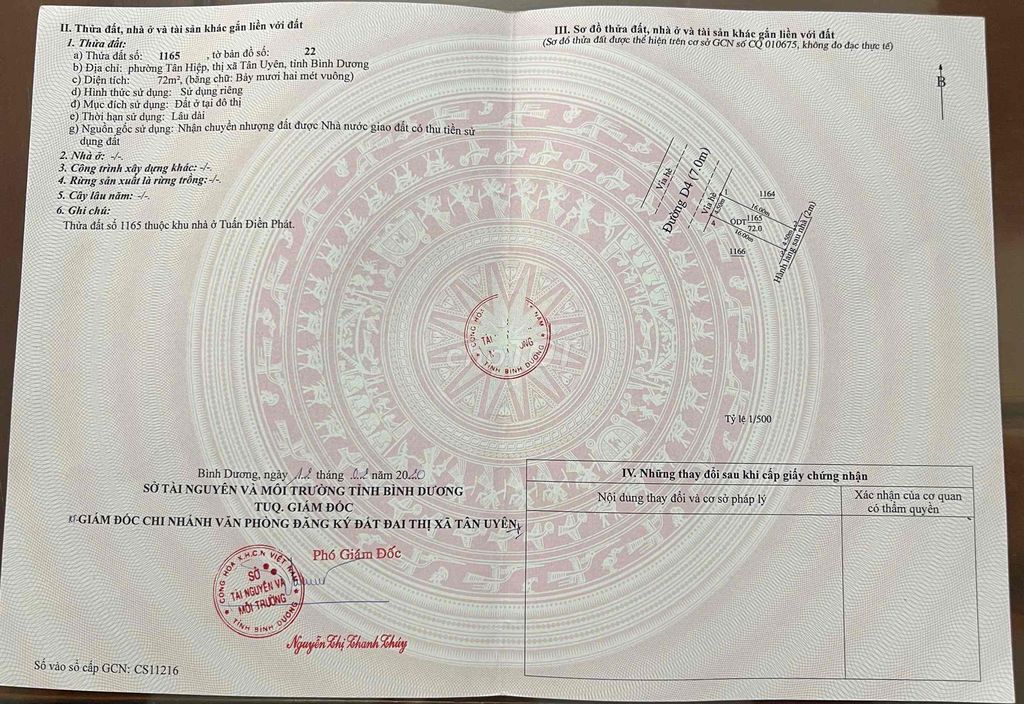 II. Thửa đất, nhà ở và tài sản khác gắn liền với đất
1. Thửa đất:
a) Thửa đất số: 1165 , tờ bản đồ số: 22
b) Địa chỉ: phường Tân Hiệp, thị xã Tân Uyên, tỉnh Bình Dương
c) Diện tích: 72m², (bằng chữ: Bảy mươi hai mét vuông)
d) Hình thức sử dụng: Sử dụng riêng
đ) Mục đích sử dụng: Đất ở tại đô thị
e) Thời hạn sử dụng: Lâu dài
g) Nguồn gốc sử dụng: Nhận chuyển nhượng đất được Nhà nước giao đất có thu tiền sử
dụng đất
2. Nhà ở: -/-.
3. Công trình xây dựng khác: -/-.
4. Rừng sản xuất là rừng trồng:-/-.
5. Cây lâu năm: -/-.
6. Ghi chú:
Thửa đất số 1165 thuộc khu nhà ở Tuấn Điền Phát.
Bình Dương, ngày tháng năm 2020
SỞ TÀI NGUYÊN VÀ MÔI TRƯỜNG TỈNH BÌNH DƯƠNG
TUQ. GIÁM ĐỐC
GIÁM ĐỐC CHI NHÁNH VĂN PHÒNG ĐĂNG KÝ ĐẤT ĐAI THỊ XÃ TÂN UYÊN
Phó Giám Đốc
CỘNG HÒA X.H.C.N VIỆT NAM
SỞ
TÀI NGUYÊN VÀ
MÔI TRƯỜNG
TỈNH BÌNH DƯƠNG
Nguyễn Thị Thanh Thúy
Số vào sổ cấp GCN: CS11216
III. Sơ đồ thửa đất, nhà ở và tài sản khác gắn liền với đất
(Sơ đồ thửa đất được thể hiện trên cơ sở GCN số CQ 010675, không đo đạc thực tế)
B
Vỉa hè
Đường D4 (7.0m)
Vỉa hè
1
4.50m
4
1164
16.00m
ODT 1165
72.0
16.00m
1166
4.50m
Hành lang sau nhà (2m)
CỘNG HÒA
NAM
TÀI
ỜNG
TỈNH BÌNH DƯƠNG
Tỷ lệ 1/500
IV. Những thay đổi sau khi cấp giấy chứng nhận
Nội dung thay đổi và cơ sở pháp lý
Xác nhận của cơ quan
có thẩm quyền